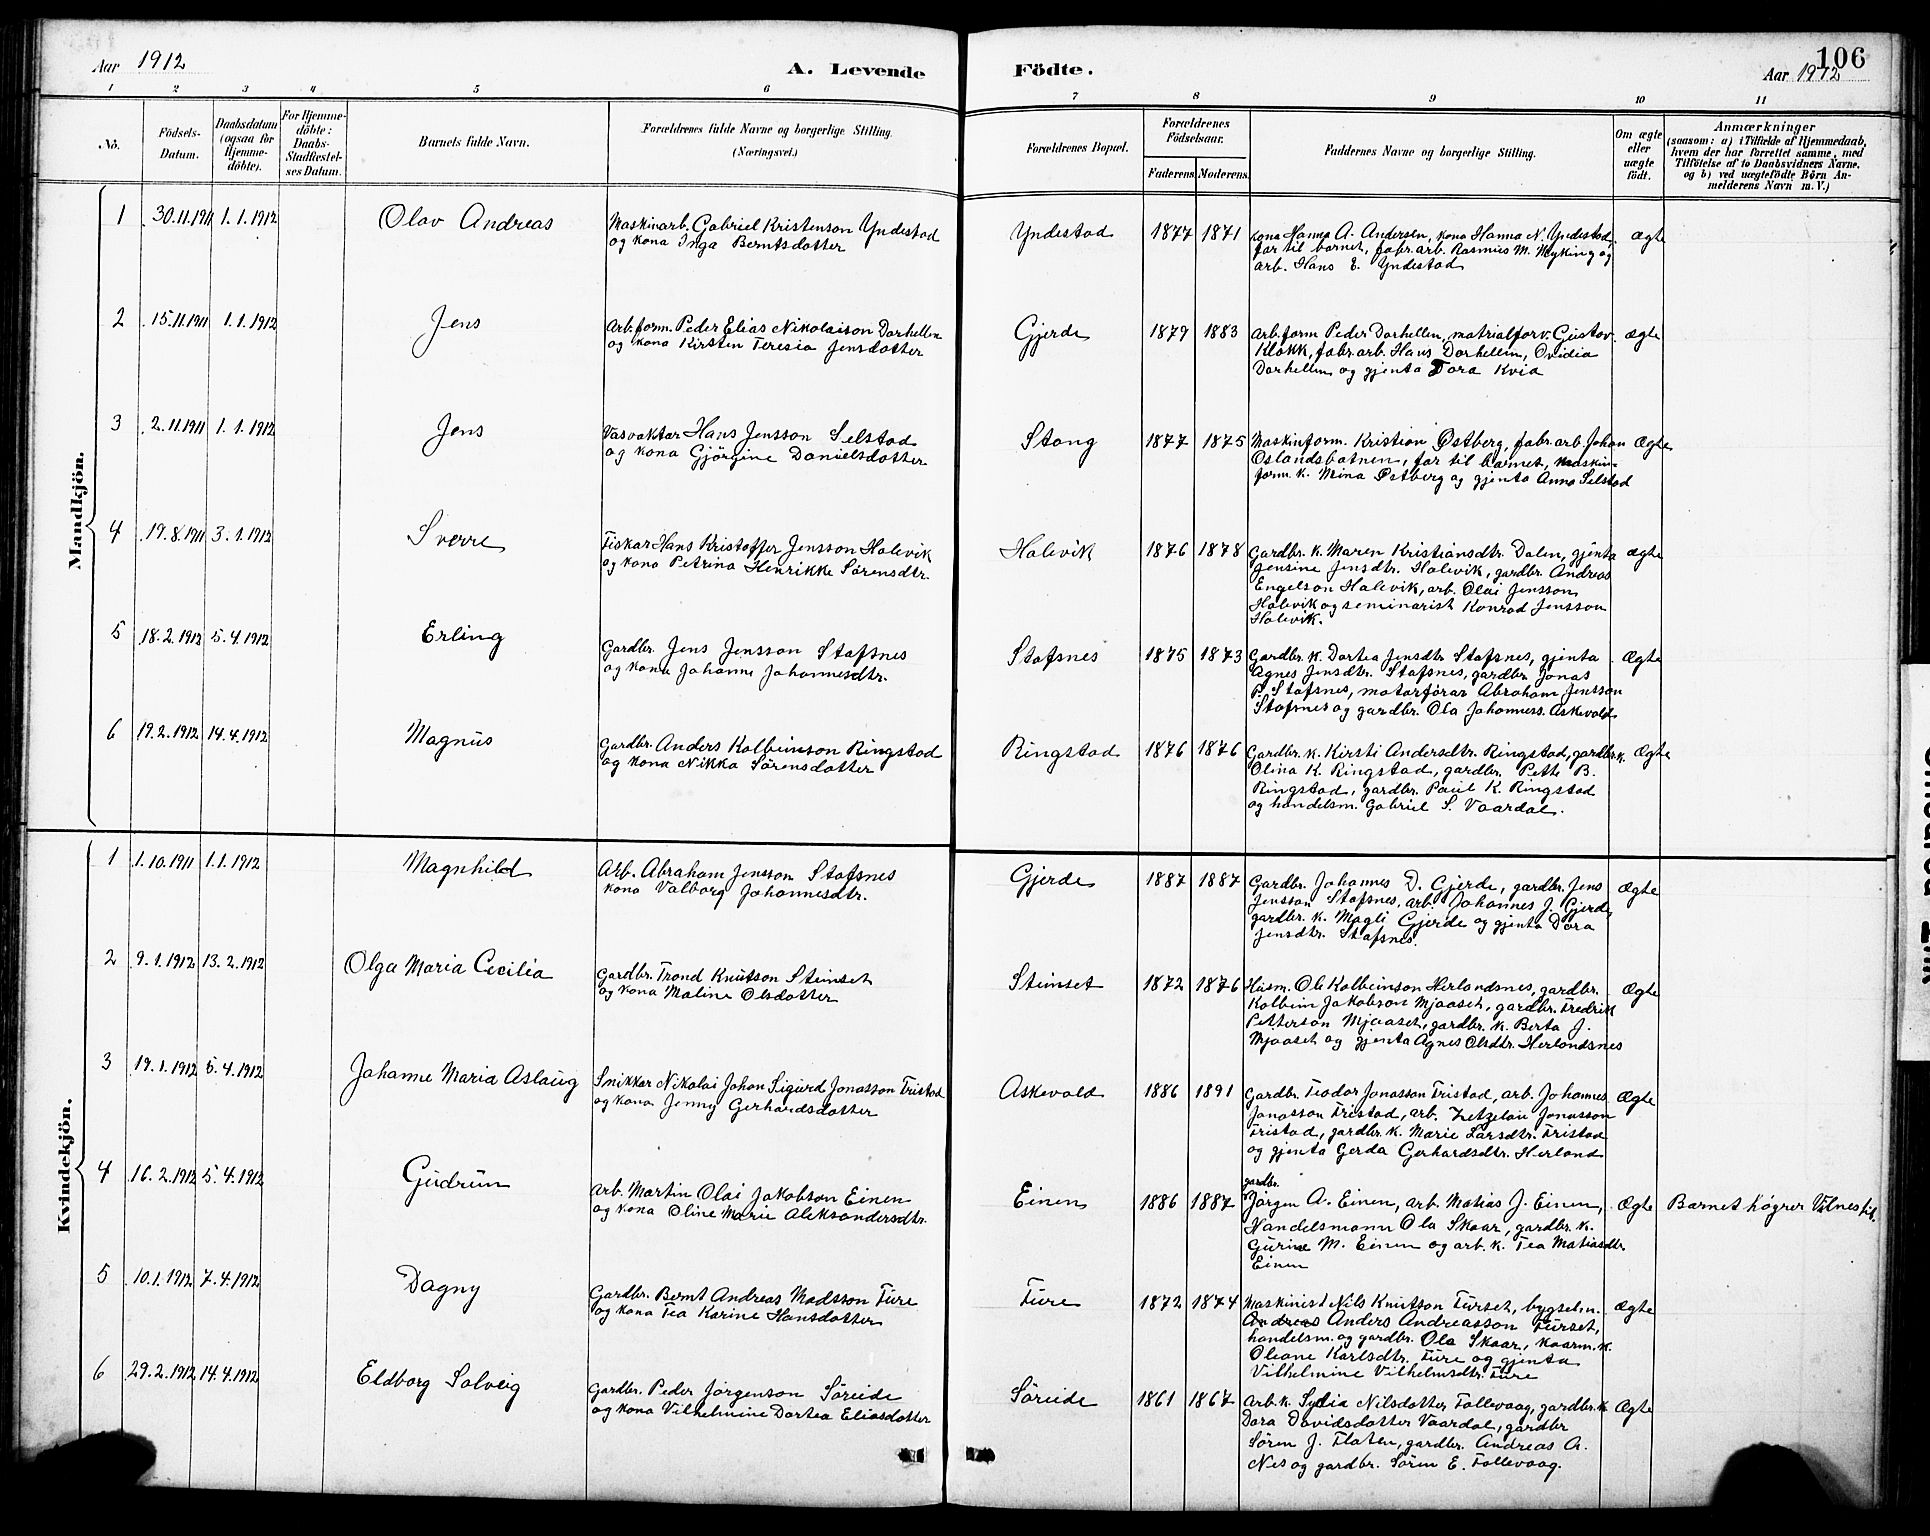 Aar 1912
A. Levende
Födte.
106
Aar 1912
1 2 3 4 5 6 7 8 9 10 11
No.
Födsels-
Datum.
Daabsdatum
(ogsaa for
Hjemme-
döbte).
For Hjemme-
döbte:
Daabs-
Stadfæstel-
ses Datum.
Barnets fulde Navn.
Forældrenes fulde Navne og borgerlige Stilling.
(Næringsvei.)
Forældrenes Bopæl.
Forældrenes
Födselsaar.
Faderens. Moderens.
Faddernes Navne og borgerlige Stilling.
Om ægte
eller
uægte
födt.
Anmærkninger
(saasom: a) i Tilfælde af Hjemmedaab,
hvem der har forrettet samme, med
Tilföielse af to Daabsvidners Navne.
og b) ved uægtefödte Börn An-
melderens Navn m. V.)
Mandkjön.
1 30.11.1911 1.1.1912 Olav Andreas
Maskinarb. Gabriel Kristenson Yndestad
og kona Inga Berntsdotter
Yndestad 1877 1871
kona Hanna A. Andersen, kona Hanna N. Yndestad,
far til barnet, fabr.arb. Rasmus M. Myking og
arb. Hans E. Yndestad
Ægte
2 15.11.1911 1.1.1912 Jens
Arb.form. Peder Elias Nikolaison Dorhellen
og kona Kirsten Teresia Jensdotter
Gjerde 1879 1883
Arb.form Peder Dorhellen, matrialforv. Gustav
Klokk, fabr.arb. Hans Dorhellen, Ovidia
Dorhellen og gjenta Tora Kvia
Ægte
3 2.11.1911 1.1.1912 Jens
Vasvaktar Hans Jensson Selstad
og kona Gjørgine Danielsdotter
Stang 1877 1875
Maskinform. Kristian Østberg, fabr.arb. Johan
Oslandsbotnen, far til barnet, maskin-
form. k. Mina Østberg og gjenta Anna Selstad
Ægte
4 19.8.1911 3.1.1912 Sverre
Fiskar Hans Kristoffer Jensson Holevik
og kona Petrina Henrikke Sørensdtr.
Holevik 1876 1878
Gardbr. k. Maren Kristiansdtr. Dalen, gjenta
Jensine Jensdtr. Holevik, gardbr. Andreas
Engelson Holevik, arb. Olai Jensson
Holevik og seminarist Konrad Jensson
Holevik.
Ægte
5 18.2.1912 5.4.1912 Erling
Gardbr. Jens Jensson Stafsnes
og kona Johanne Johannesdtr.
Stafsnes 1875 1873
Gardbr. k. Dortea Jensdtr Stafsnes, gjenta
Agnes Jensdtr. Stafsnes, gardbr Jonas
P. Stafsnes, motorførar Abraham Jensson
Stafsnes og gardbr. Ola Johanness. Askevold
Ægte
6 19.2.1912 14.4.1912 Magnus
Gardbr. Anders Kolbeinson Ringstad
og kona Nikka Sørensdotter
Ringstad 1876 1876
Gardbr. k. Kirsti Andersdtr. Ringstad, gardbr. k.
Olina K. Ringstad, gardbr. Pette B.
Ringstad, gardbr. Paul K. Ringstad
og handelsm. Gabriel S. Vaardal.
Ægte
Kvindekjön.
1 1.10.1911 1.1.1912 Magnhild
Arb. Abraham Jensson Stafsnes
kona Valborg Johannesdtr.
Gjerde 1887 1887
Gardbr. Johannes D. Gjerde, gardbr. Jens
Jensson Stafsnes, arb. Johannes J. Gjerde,
gardbr. k. Magli Gjerde og gjenta Dora
Jensdtr. Stafsnes.
Ægte
2 9.1.1912 13.2.1912 Olga Maria Cecilia
Gardbr. Trond Knutson Steinset
og kona Maline Olsdotter
Steinset 1872 1876
Husm. Ole Kolbeinson Herlandsnes, gardbr.
Kolbein Jakobson Mjaaset, gardbr. Fredrik
Petterson Mjaaset, gardbr. k. Berta J.
Mjaaset og gjenta Agnes Olsdtr. Herlandsnes
Ægte
3 19.1.1912 5.4.1912 Johanne Maria Aslaug
Snikkar Nikolai Johan Sigurd Jonasson Tristad
og kona Jenny Gerhardsdotter
Askevold 1886 1891
Gardbr. Teodor Jonasson Tristad, arb. Johannes
Jonasson Tristad, arb. Zetzelau Jonasson
Tristad, gardbr. k. Marie Larsdtr. Tristad
og gjenta Gerda Gerhardsdtr. Herland
Ægte
4 16.2.1912 5.4.1912 Gudrun
Arb. Martin Olai Jakobson Einen
og kona Oline Marie Aleksandersdtr.
Einen 1886 1887
gardbr.
Jørgen A. Einen, arb. Matias J. Einen,
Handelsmann Ola Skaar, gardbr. k.
Gurine M. Einen og arb. k. Tea Matiasdtr
Einen
Ægte
Barnet høgrer Vilnes til.
5 10.1.1912 7.4.1912 Dagny
Gardbr. Bernt Andreas Madsson Fure
og kona Tea Karine Hansdotter
Fure 1872 1874
Maskinist Nils Knutson Furset, bygselm.
Andreas Anders Andreasson Furset,
handelsm. og gardbr. Ola Skaar, kaarm. k.
Oleane Karlsdtr. Fure og gjenta
Vilhelmine Vilhelmsdtr. Fure
Ægte
6 29.2.1912 14.4.1912 Eldborg Solveig
Gardbr. Peder Jørgenson Søreide
og kona Vilhelmine Dortea Eliasdotter
Søreide 1861 1867
Arb. k. Sylia Nilsdotter Follevaag, gardbr. k
Dora Davidsdotter Vaardal, gardbr
Søren J. Flaten, gardbr. Andreas A.
Nes og gardbr. Søren E. Follevaag.
Ægte